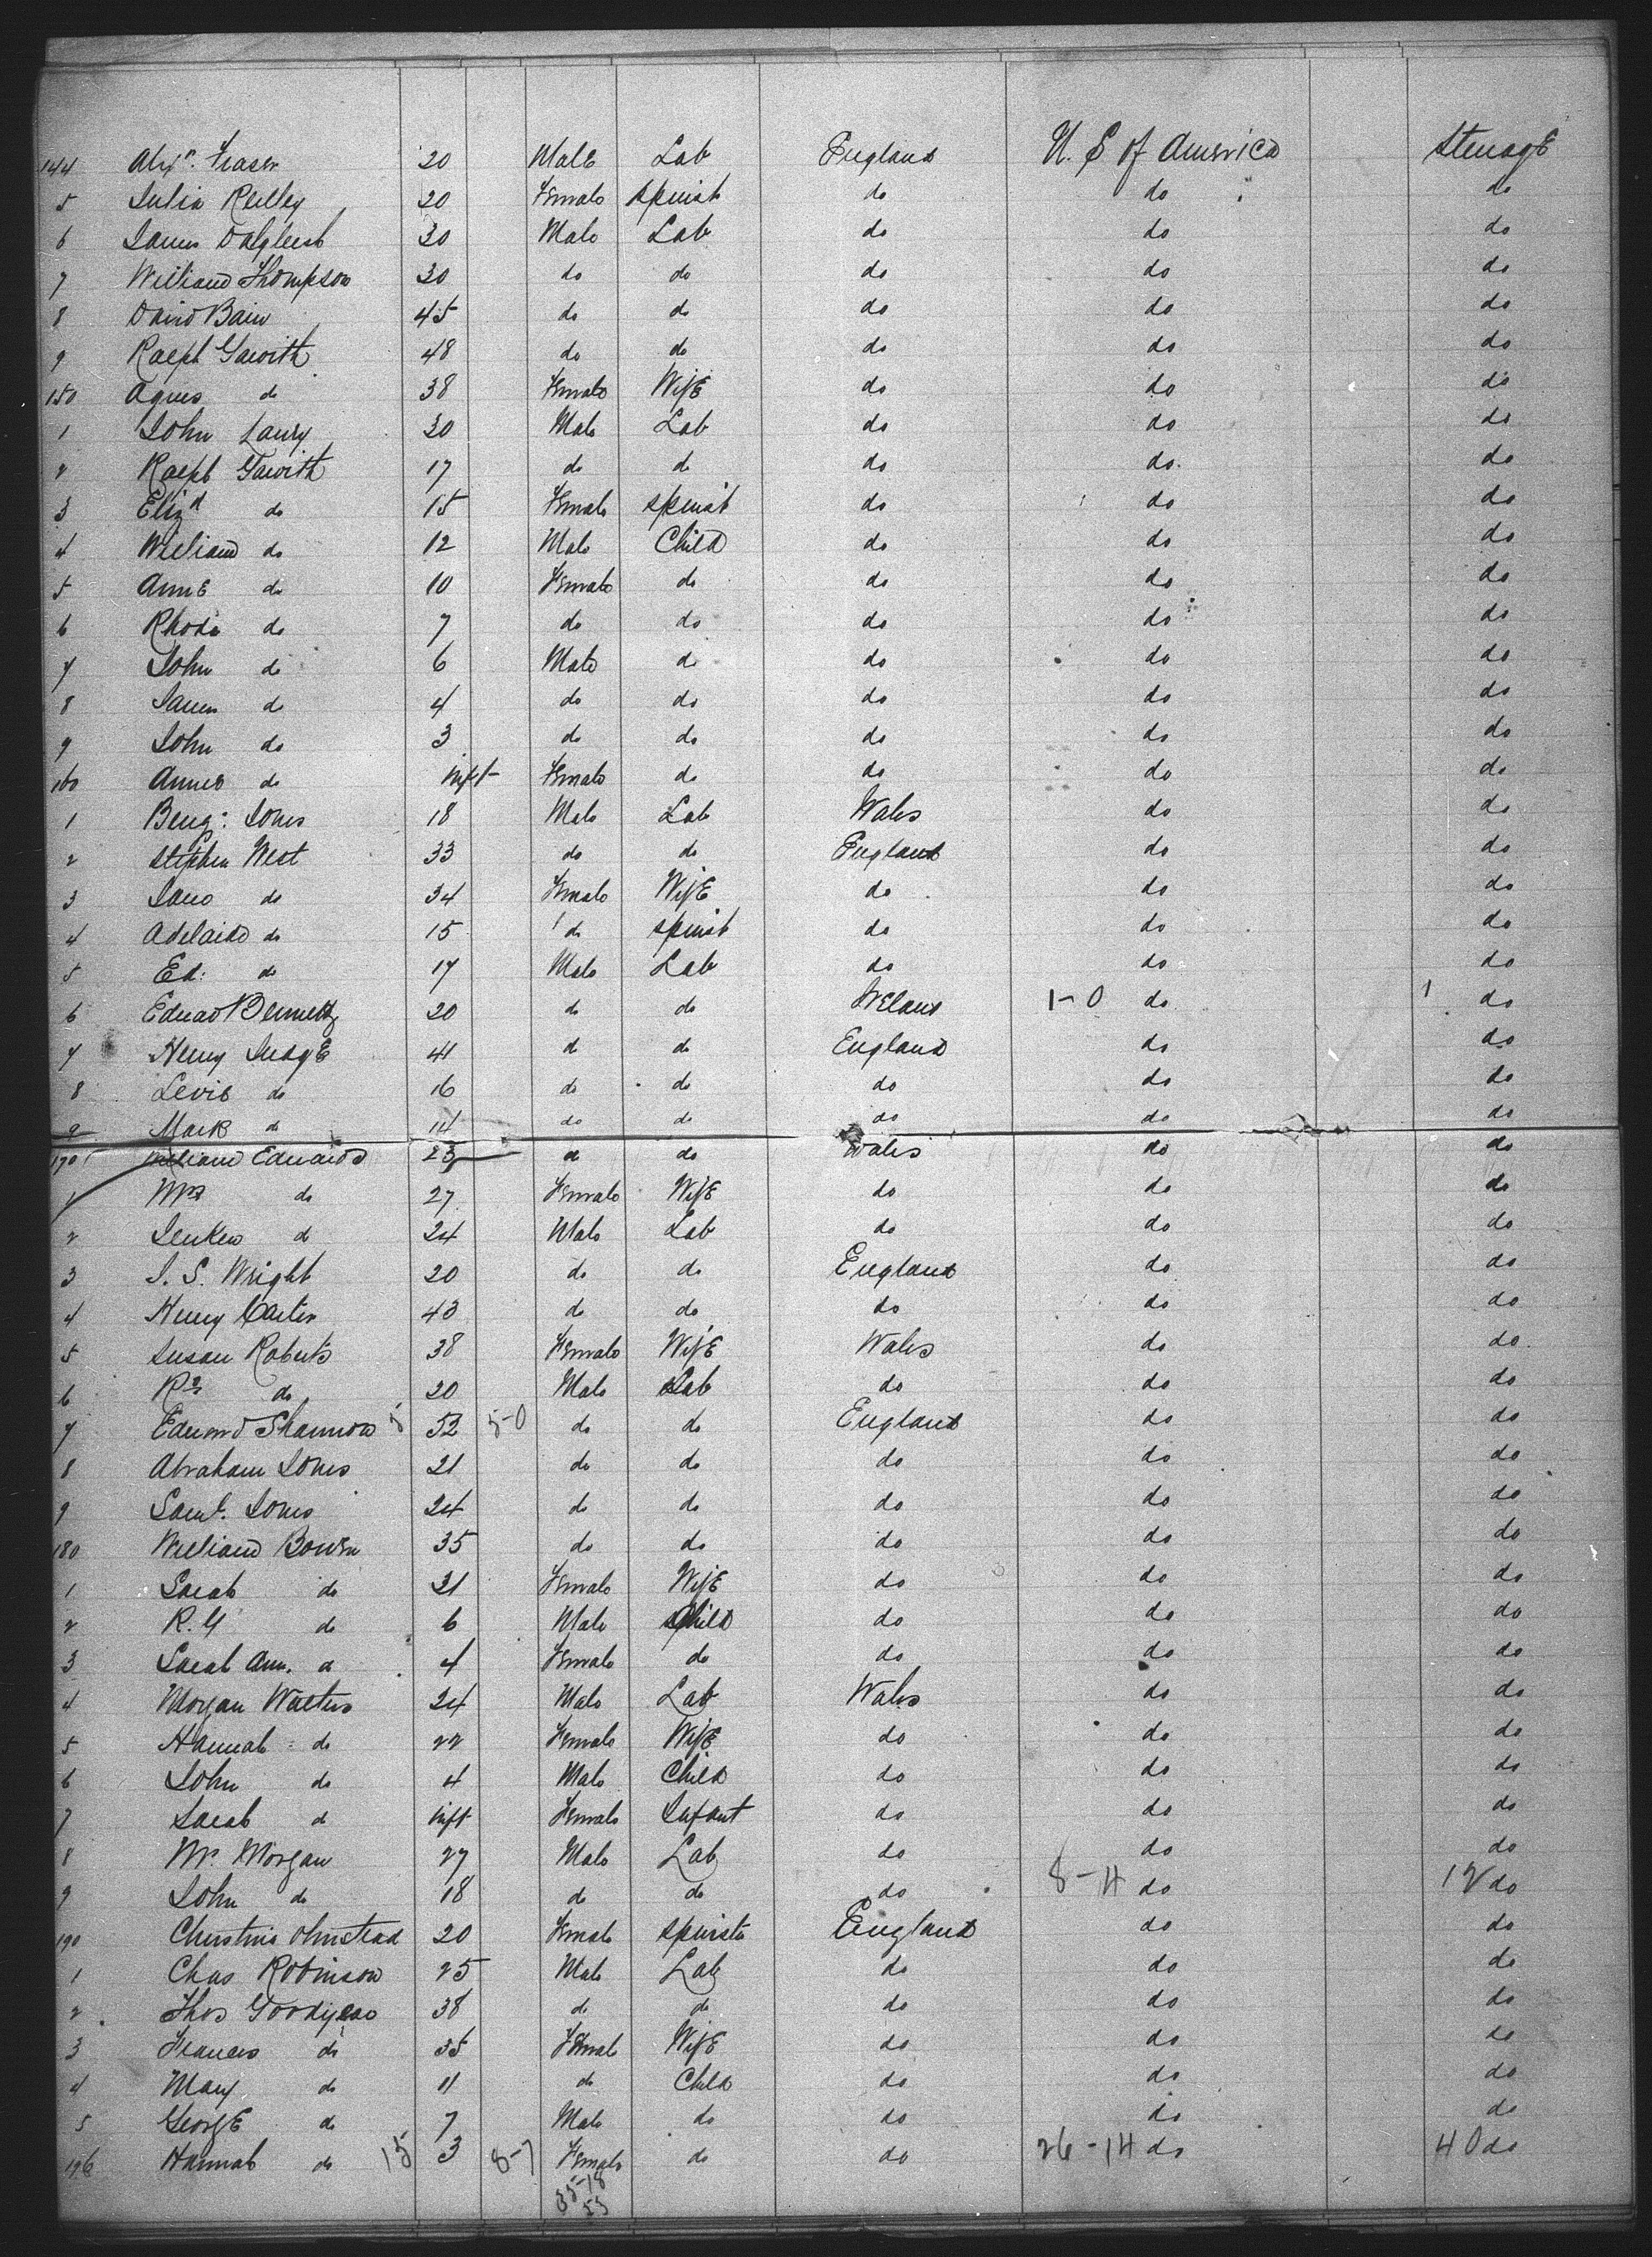 144 Alexr. Fraser 20 Male Lab England U. S of America Steerage
5 Julia Reilley 20 Female Spinst do do do
6 James Dalgleish 30 Male Lab do do do
7 William Thompson 30 do do do do do
8 David Bain 45 do do do do do
9 Ralph Gawith 48 do do do do do
150 Agnes do 38 Female Wife do do do
1 John Laury 30 Male Lab do do do
2 Ralph Gawith 17 do do do do do
3 Eliza do 15 Female Spinst do do do
4 William do 12 Male Child do do do
5 Anne do 10 Female do do do do
6 Rhoda do 7 do do do do do
7 John do 6 Male do do do do
8 James do 4 do do do do do
9 John do 3 do do do do do
160 Annes do Inft Female do do do do
1 Benj: Jones 18 Male Lab Wales do do
2 Stephen West 33 do do England do do
3 Jane do 34 Female Wife do do do
4 Adelaide do 15 do Spinst do do do
5 Ed: do 17 Male Lab do do do
6 Edward 20 do do Ireland 1-0 do 1 do
7 Henry Judge 41 do do England do do
8 Levie do 16 do do do do do
9 Mark do 14 do do do do do
170 William Edwards 23 do do Wales do do
1 Mrs do 27 Female Wife do do do
2 Jenken do 24 Male Lab do do do
3 J. S. Wright 20 do do England do do
4 Henry Carter 43 do do do do do
5 Susan Roberts 38 Female Wife Wales do do
6 do 20 Male Lab do do do
7 Edward Shannon 5 52 5-0 do do England do do
8 Abraham Jones 21 do do do do do
9 Saml. Jones 24 do do do do do
180 William Bowen 35 do do do do do
1 Sarah do 31 Female Wife do do do
2 R. G do 6 Male Child do do do
3 Sarah Ann. do 4 Female do do do do
4 Morgan Walters 24 Male Lab Wales do do
5 Hannah do 22 Female Wife do do do
6 John do 4 Male Child do do do
7 Sarah do Inft Female Infant do do do
8 Wm. Morgan 27 Male Lab do do do
9 John do 18 do do do 8-4 do 12 do
190 Christina Olmstead 20 Female Spinster England do do
1 Chas Robinson 25 Male Lab do do do
2 Thos Goodyear 38 do do do do do
3 Frances do 35 Female Wife do do do
4 Mary do 11 do Child do do do
5 George do 7 Male do do do do
196 Hannah do 15 3 8-7 Female do do 26-14 do 40 do
35-18
53